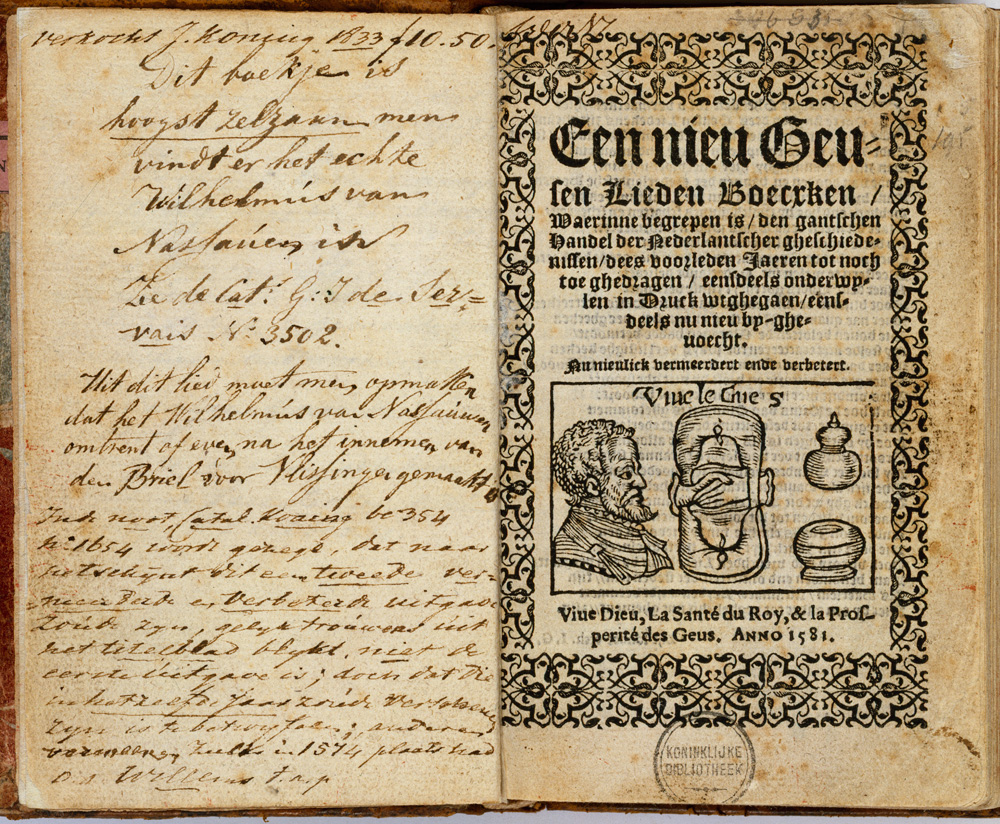 verkocht J. Koning 1833 f10.50.
Dit boekje is
hoogst zelzaam men
vindt er het echte
Wilhelmús van
Nassaúen in
Zie de Cat. G: J de Ser=
vais No 3502.
Uit dit lied moet men opmaken
dat het Wilhelmús van Nassaúwen
omtrent of even na het innemen van
den Briel voor Vlissingen gemaakt is
In de noot, Catal. Koning bl 354
No 1654 wordt gezegd, dat naar
het schijnt dit een tweede ver=
meerderde en verbeterde uitgave
zoude zyn, gelyk trouwens uit
het titelblad blykt, niet de
eerste uitgave is; doch dat die
in hetzelfde Jaar zoúde
zyn is te betwyfelen; anderen
vermeenen zulks in 1574 plaats had
Willems
Een nieu Geu-
sen Lieden Boecxken /
Waerinne begrepen is / den gantschen
Handel der Nederlantscher gheschiede-
nissen / dees voorleden Jaeren tot noch
toe ghedragen / eensdeels onderwy-
len in Druck wtghegaen / eens-
deels nu nieu by-ghe-
voecht.
Nu nieulick vermeerdert ende verbetert.
Viue le Gues
Viue Dieu, La Santé du Roy, & la Pros-
perité des Geus. ANNO 1581.
KONINKLIJKE
BIBLIOTHEEK